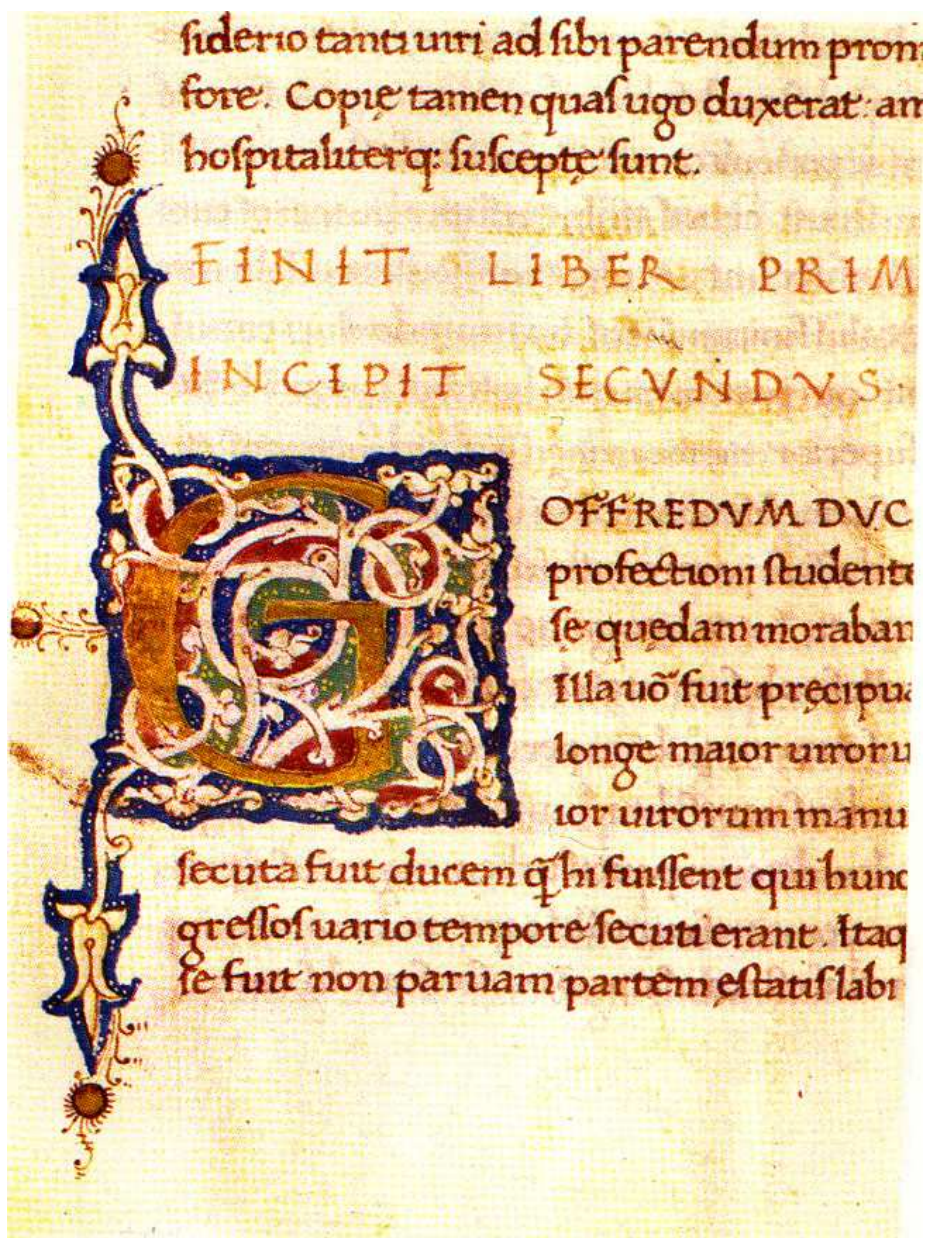 siderio tanti uiri ad sibi parendum prom
fore. Copię tamen quas ugo duxerat: am
hospitaliterq: susceptę sunt.
FINIT LIBER PRIM
INCIPIT SECVNDVS.
G
OFFREDVM DVC
profectioni studente
se quędam moraban
Illa uõ fuit pręcipua
longe maior uiroru
ior uirorum manu
secuta fuit ducem q̃ hi fuissent qui hunc
gressos uario tempore secuti erant. Itaq
se fuit non paruam partem ęstatis labi